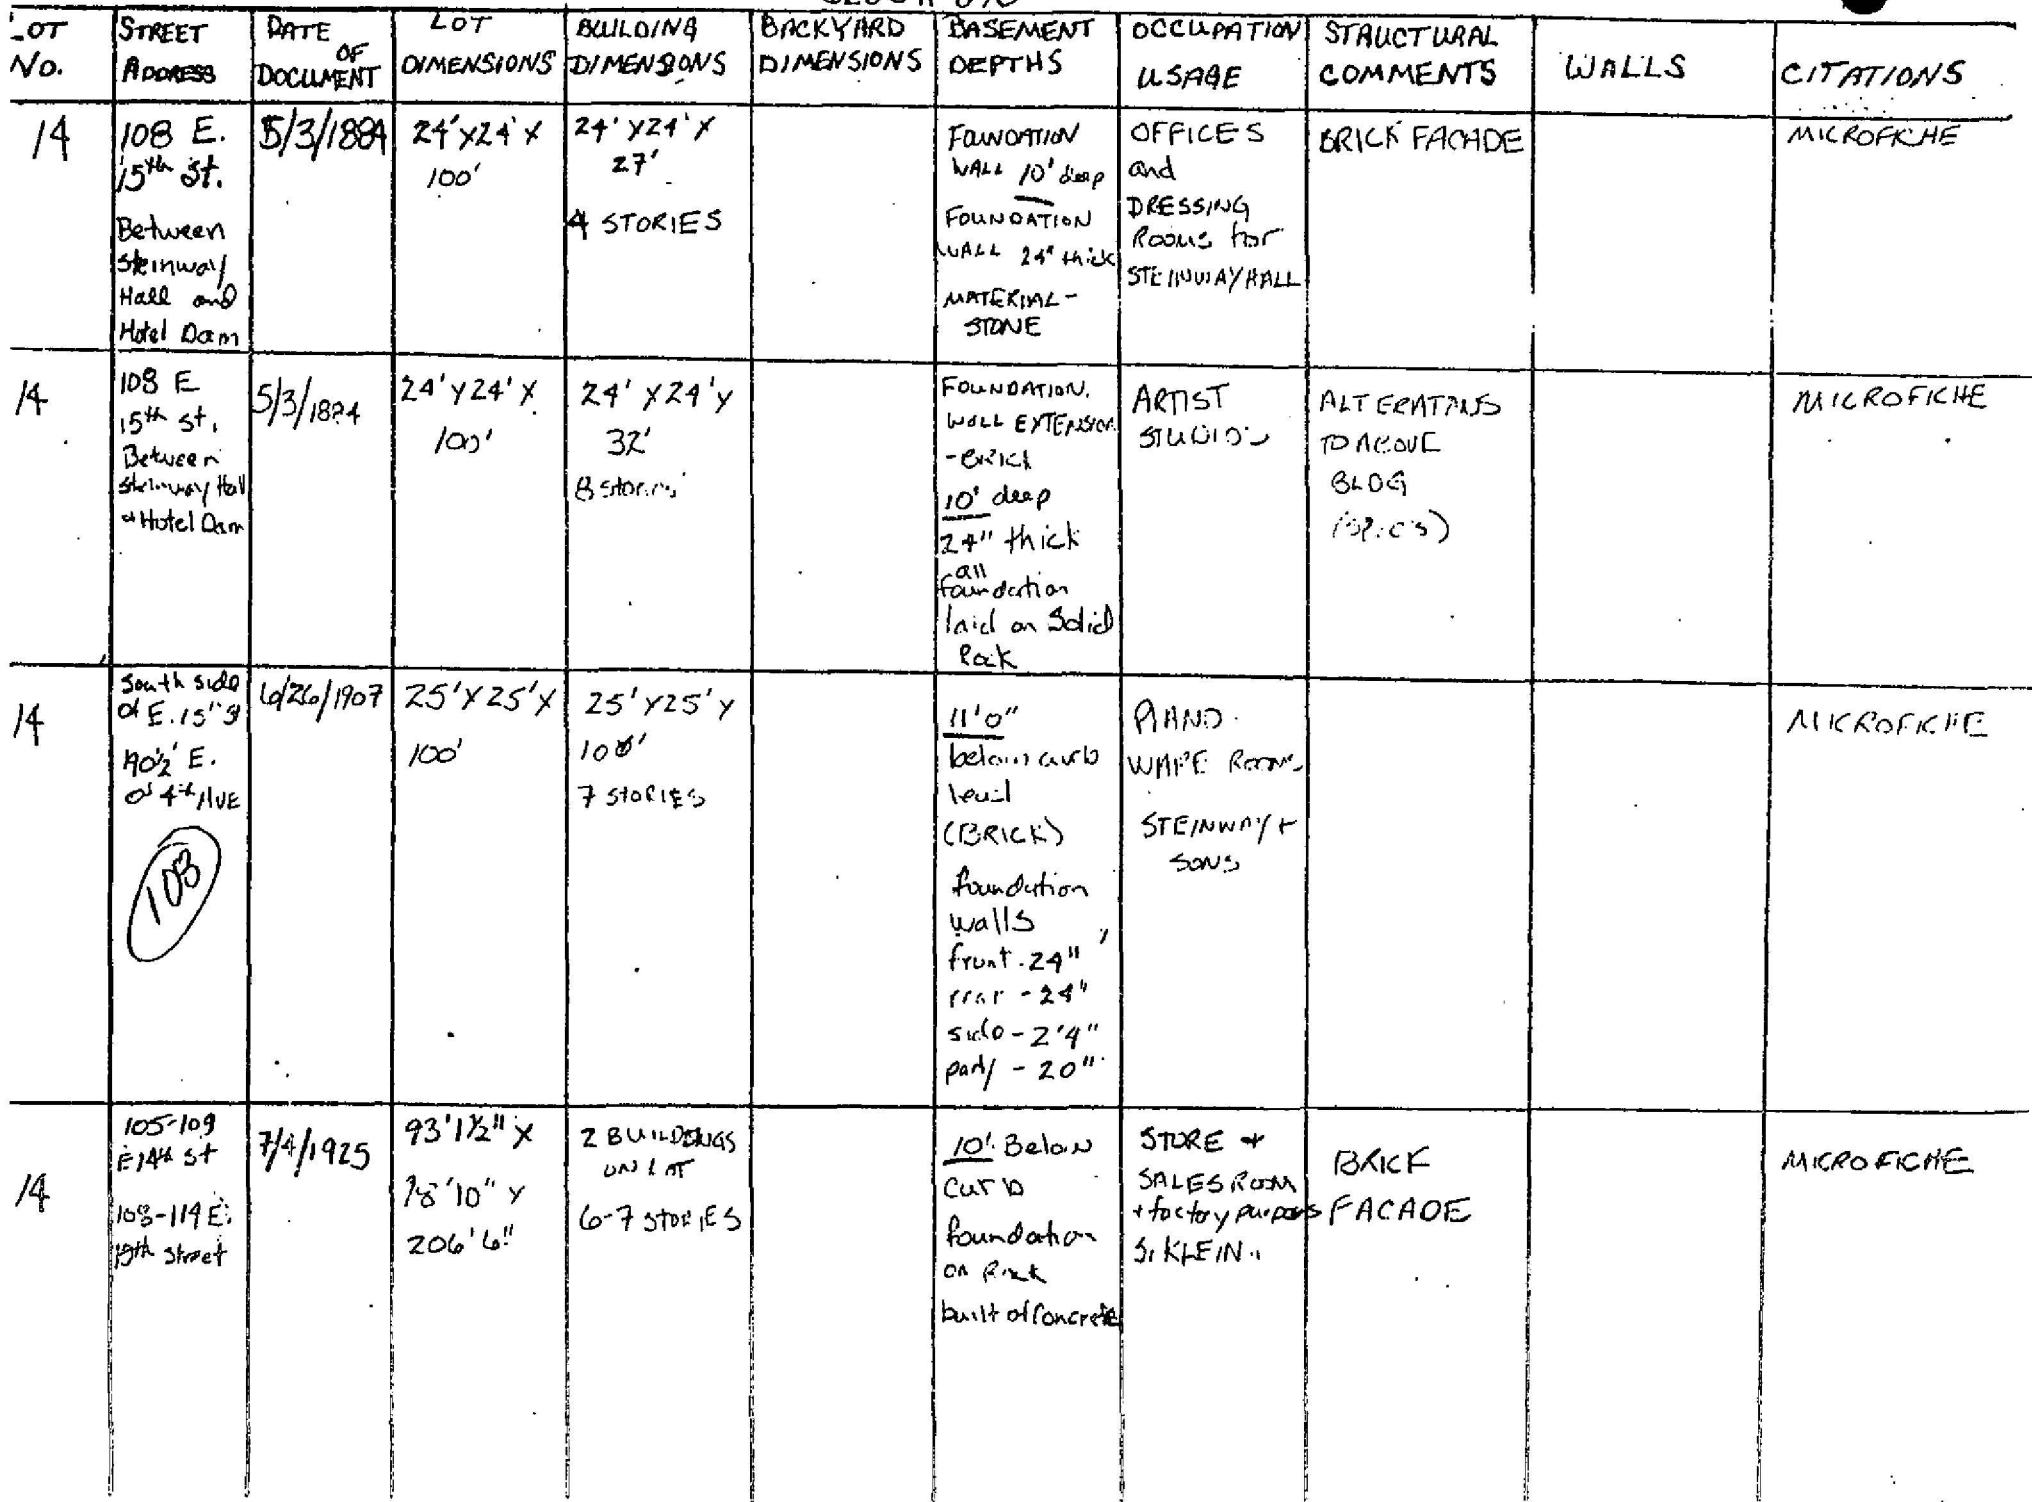 LOT No. | STREET ADDRESS | DATE OF DOCUMENT | LOT DIMENSIONS | BUILDING DIMENSIONS | BACKYARD DIMENSIONS | BASEMENT DEPTHS | OCCUPATION USAGE | STRUCTURAL COMMENTS | WALLS | CITATIONS
14
108 E.
15th St.
Between
Steinway
Hall and
Hotel Dam
5/3/1884
24'x24'x
100'
24'x24'x
27'
4 STORIES
FOUNDATION
WALL 10' deep
FOUNDATION
WALL 24" thick
MATERIAL-
STONE
OFFICES
and
DRESSING
Rooms for
STEINWAY HALL
BRICK FACADE
MICROFICHE
14
108 E
15th st.
Between
Steinway Hall
+ Hotel Dam
5/3/1884
24'x24'x
100'
24'x24'x
32'
8 stories
FOUNDATION
WALL EXTENSION
-BRICK
10' deep
24" thick
all
foundation
laid on Solid
Rock
ARTIST
STUDIOS
ALTERATIONS
TO ABOVE
BLDG
MICROFICHE
14
South side
of E. 15th St
90½' E.
of 4th AVE
108
6/26/1907
25'x25'x
100'
25'x25'x
100'
7 STORIES
11'0"
below curb
level
(BRICK)
foundation
walls
front - 24"
rear - 24"
side - 2'4"
party - 20"
PIANO
WARE ROOMS
STEINWAY +
SONS
MICROFICHE
14
105-109
E 14th st
108-114 E.
15th Street
7/4/1925
93'1½" x
78'10" x
206'6"
2 BUILDINGS
ON LOT
6-7 STORIES
10' Below
curb
foundation
on Rock
built of Concrete
STORE +
SALES ROOM
+ factory purposes
S. KLEIN
BRICK
FACADE
MICROFICHE